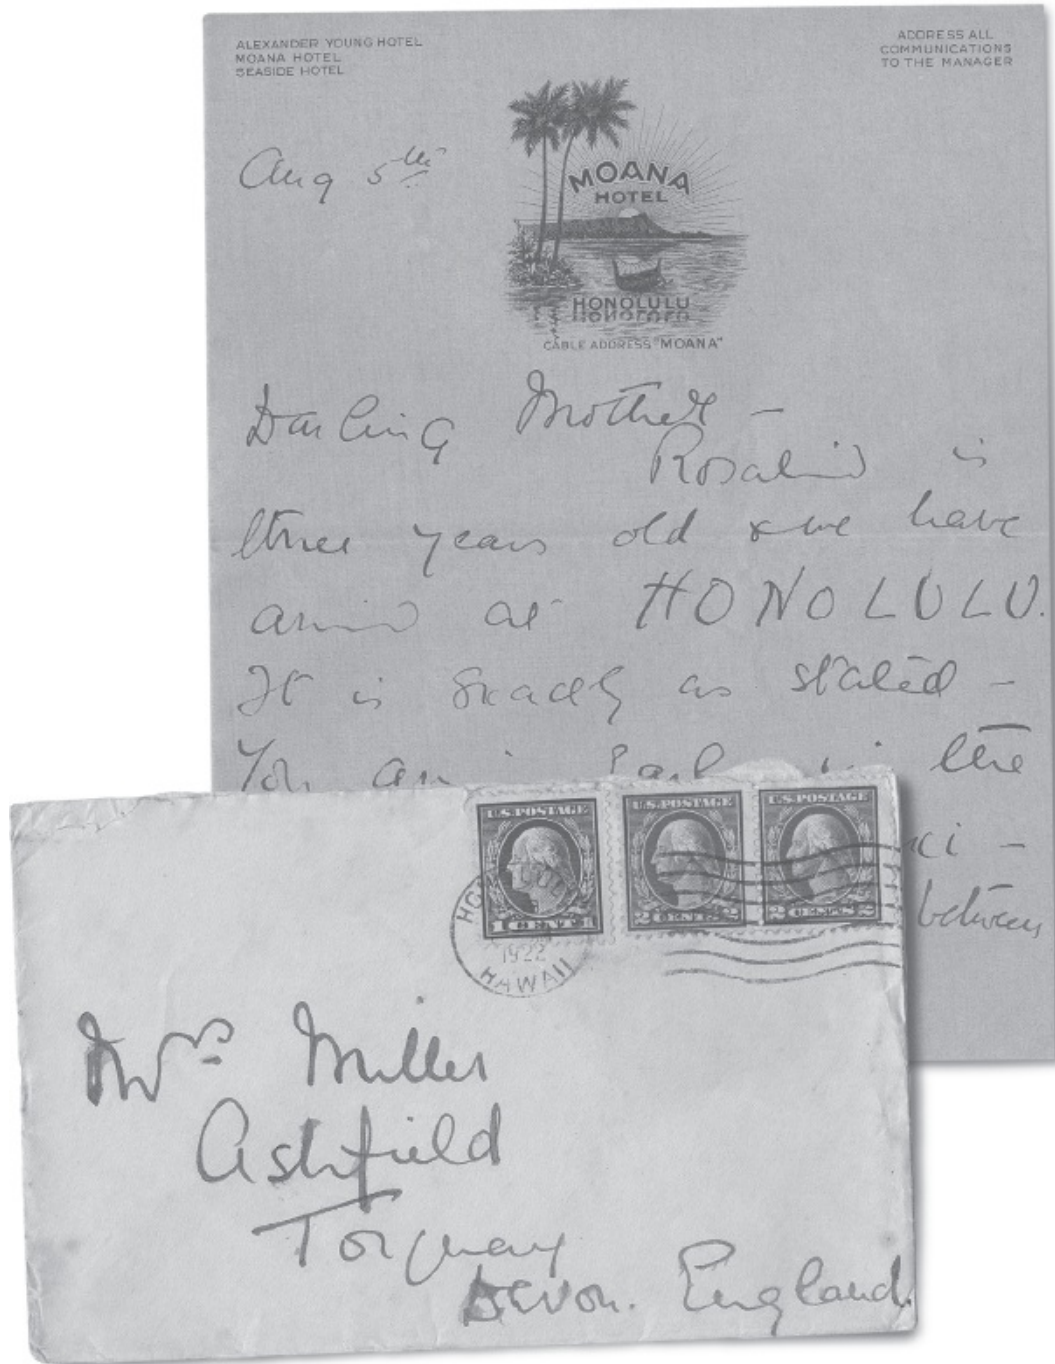 ALEXANDER YOUNG HOTEL
MOANA HOTEL
SEASIDE HOTEL
ADDRESS ALL
COMMUNICATIONS
TO THE MANAGER
MOANA
HOTEL
HONOLULU
CABLE ADDRESS "MOANA"
Aug 5th
Darling Mother –
Rosalind is
three years old & we have
arrived at HONOLULU.
It is exactly as stated –
You in the
between
U.S. POSTAGE
1 CENT 1
U.S. POSTAGE
2 CENTS 2
U.S. POSTAGE
2 CENTS 2
1922
HAWAII
Mrs Miller
Ashfield
Torquay
Devon. England.